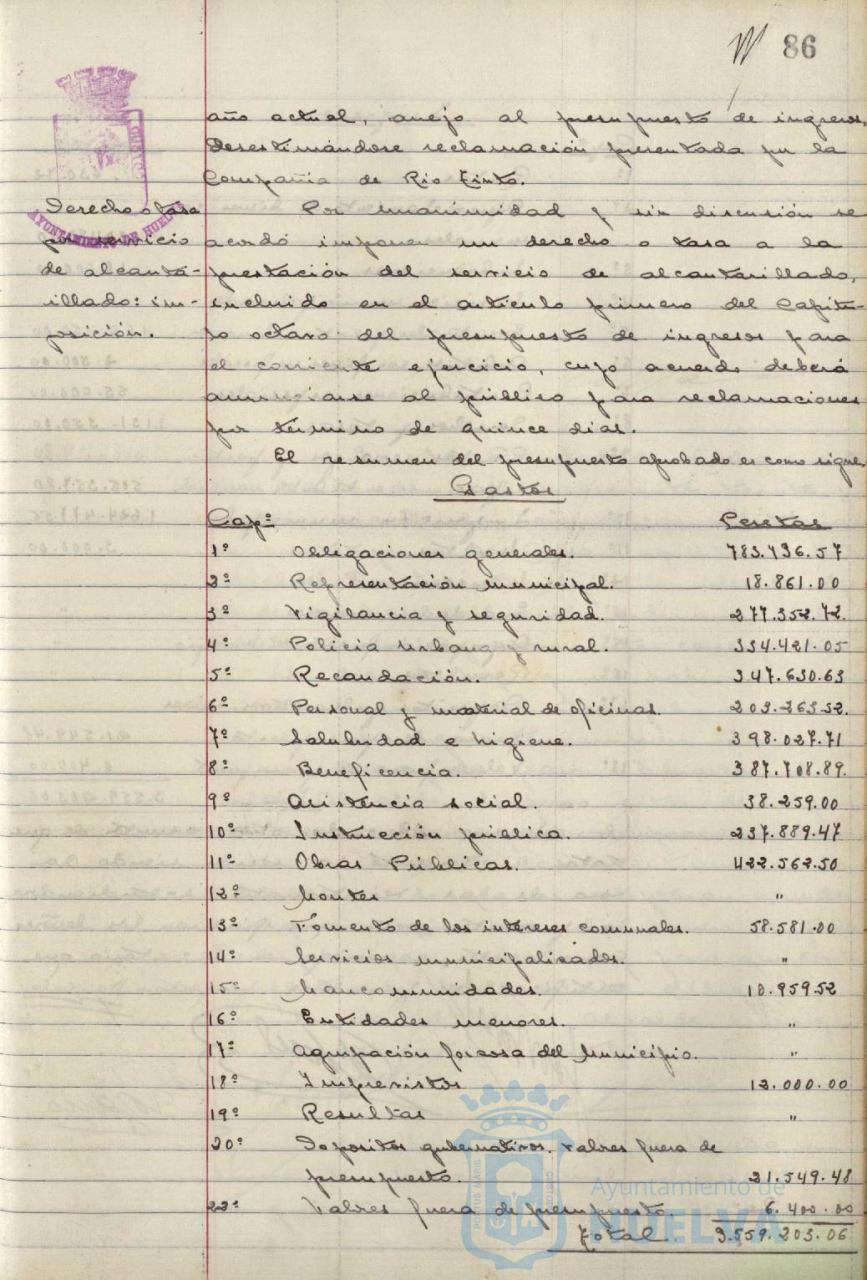 86
año actual, anejo al presupuesto de ingresos,
desestimándose reclamación presentada por la
Compañia de Rio Tinto.
Derecho o tasa
por servicio
de alcanta-
rillado: im-
posición.
Por unanimidad y sin discusión se
acordó imponer un derecho o tasa a la
prestación del servicio de alcantarillado,
incluido en el artículo primero del Capítu-
lo octavo del presupuesto de ingresos para
el corriente ejercicio, cuyo acuerdo deberá
anunciarse al público para reclamaciones
por término de quince dias.
El resumen del presupuesto aprobado es como sigue
Gastos
Capº Pesetas
1º Obligaciones generales. 783.736.57
2º Representación municipal. 18.861.00
3º Vigilancia y seguridad. 277.352.72.
4º Policia urbana y rural. 334.421.05
5º Recaudación. 347.630.63
6º Personal y material de oficinas. 203.263.52.
7º Salubridad e higiene. 398.027.71
8º Beneficencia. 387.708.89.
9º Asistencia social. 38.259.00
10º Instrucción pública. 237.889.47
11º Obras Públicas. 422.562.50
12º Montes "
13º Fomento de los intereses comunales. 58.581.00
14º Servicios municipalizados. "
15º Mancomunidades. 10.959.52
16º Entidades menores. "
17º Agrupación forzosa del Municipio. "
18º Imprevistos 12.000.00
19º Resultas "
20º Depositos gubernativos. Valores fuera de
presupuesto. 21.549.48
22º Valores fuera de presupuesto. 6.400.00
Total. 3.559.203.06
AYUNTAMIENTO DE HUELVA
Ayuntamiento de
HUELVA